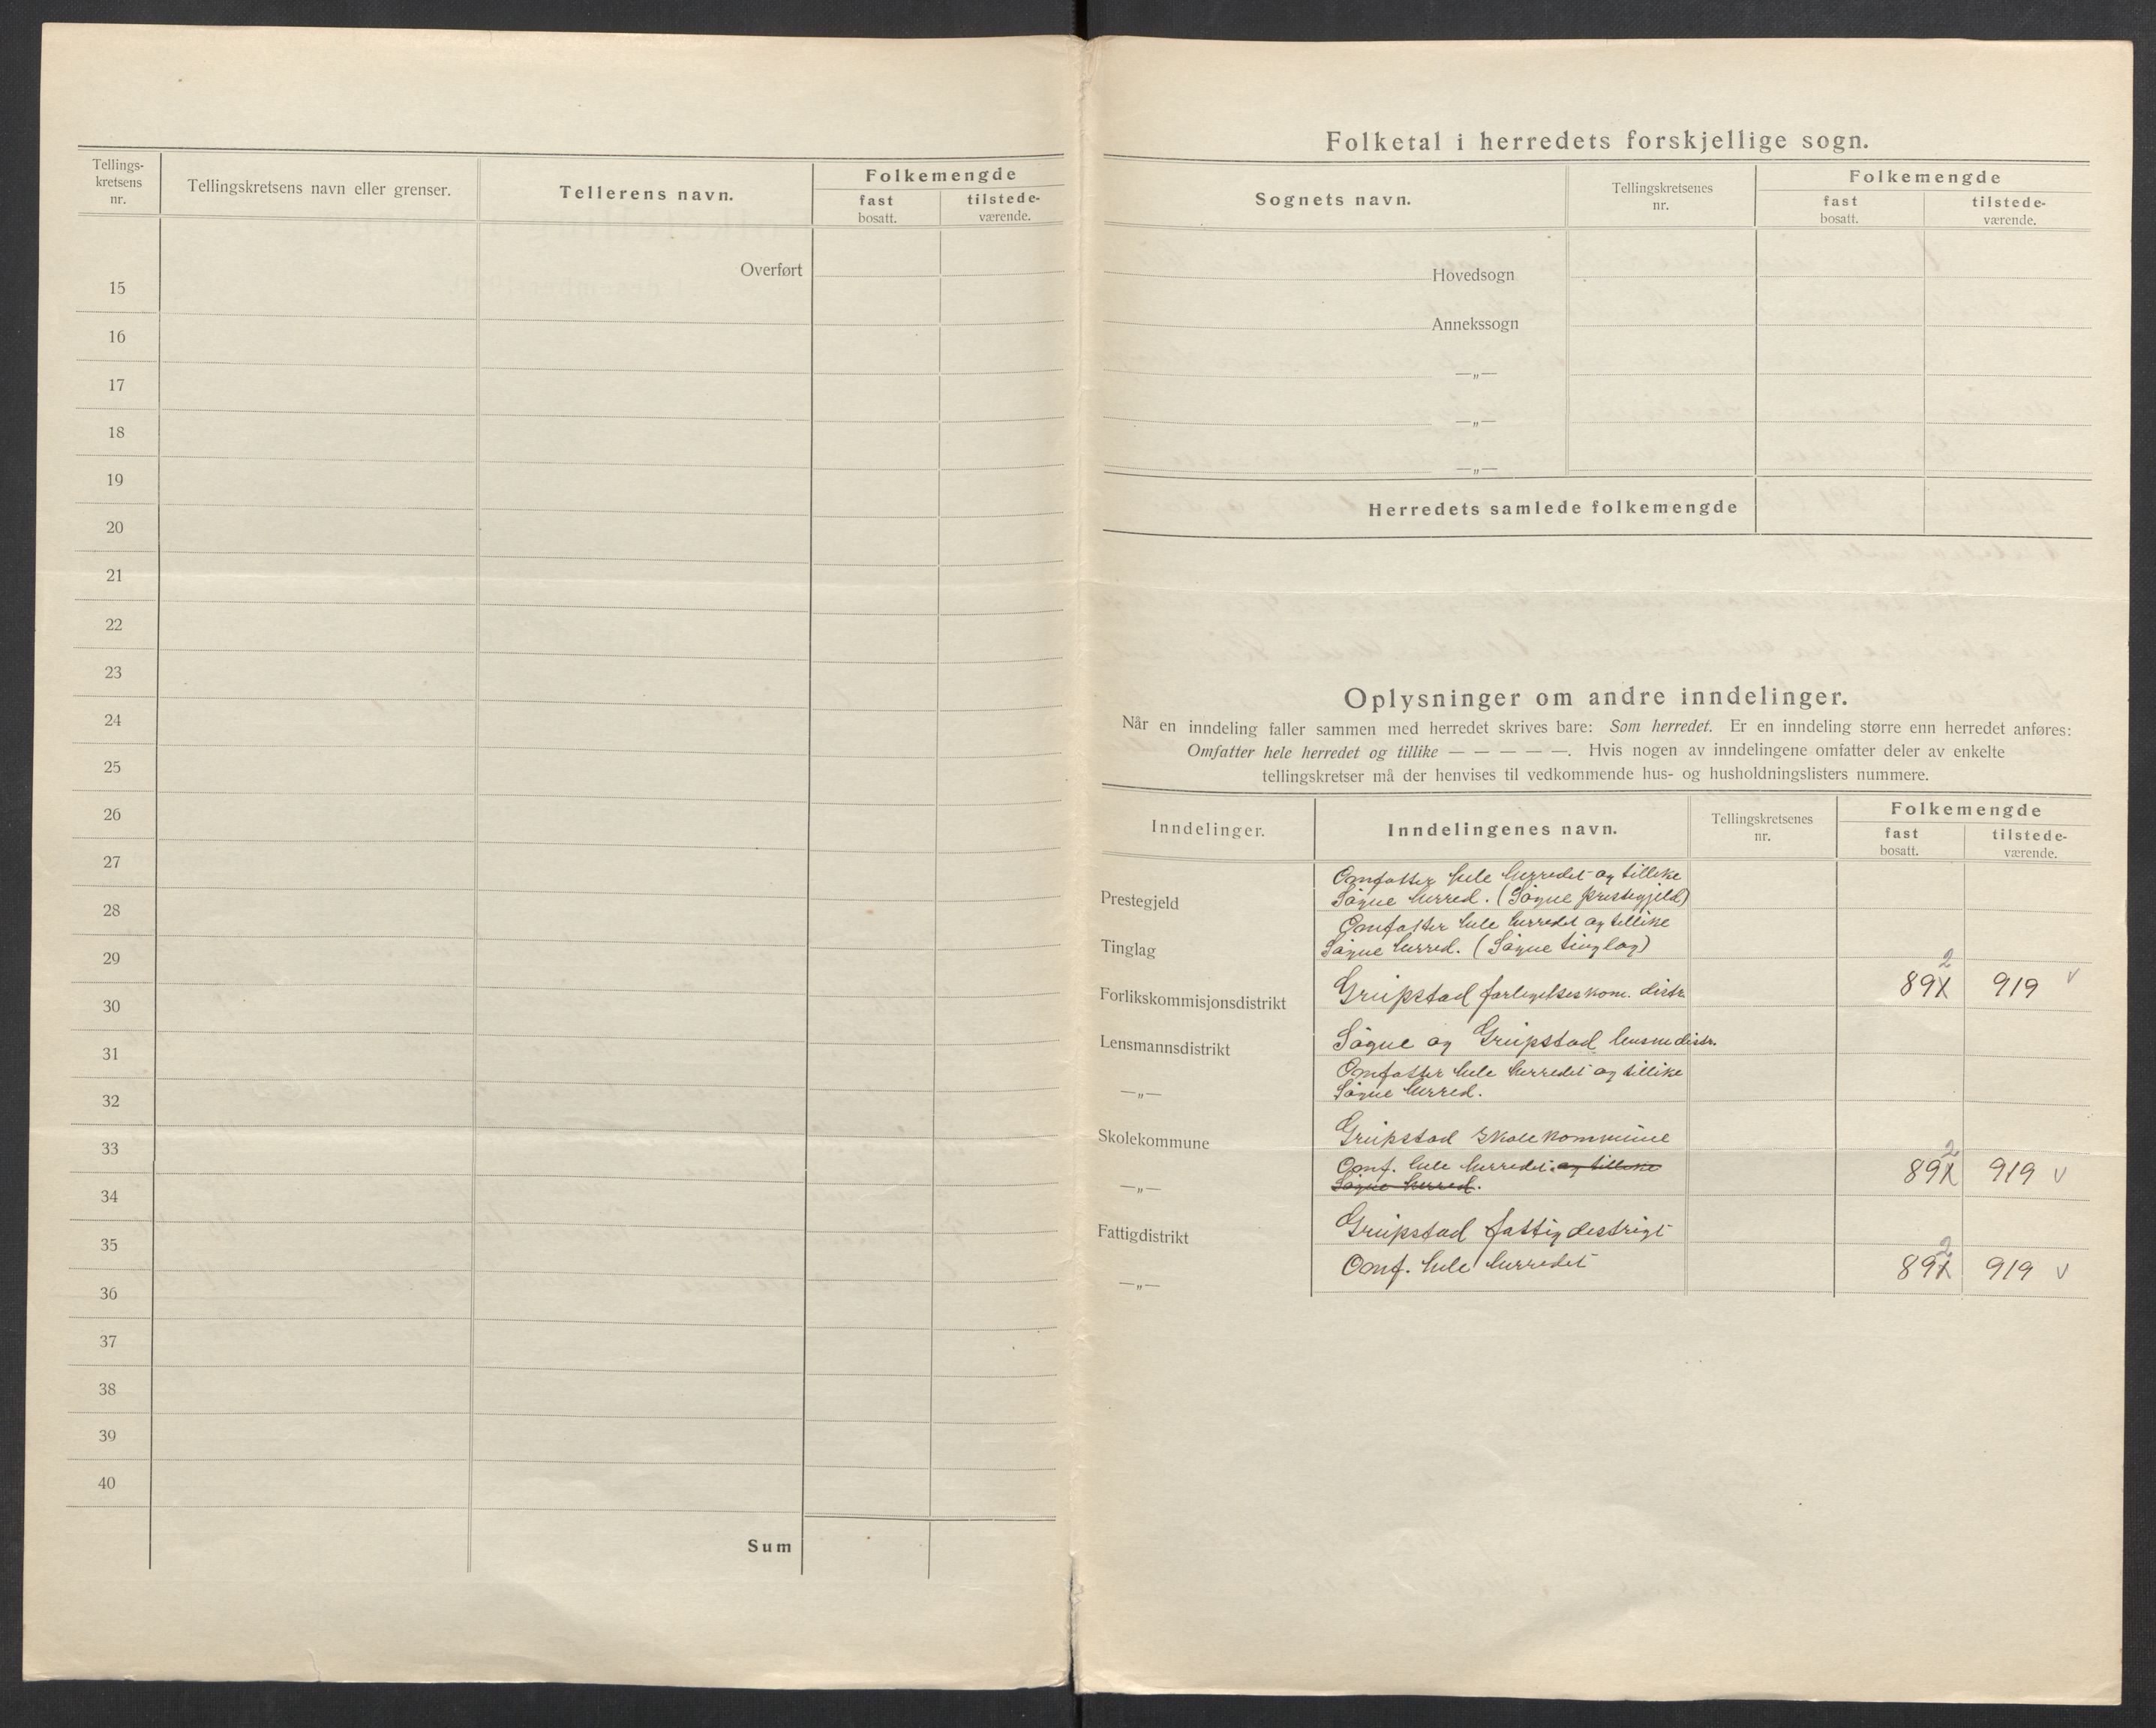 Tellings-
kretsens
nr.
Tellingskretsens navn eller grenser.
Tellerens navn.
Folkemengde
fast
bosatt.
tilstede-
værende.
Overført
15
16
17
18
19
20
21
22
23
24
25
26
27
28
29
30
31
32
33
34
35
36
37
38
39
40
Sum
Folketal i herredets forskjellige sogn.
Sognets navn.
Tellingskretsenes
nr.
Folkemengde
fast
bosatt.
tilstede-
værende.
Hovedsogn
Annekssogn
—„—
—„—
—„—
Herredets samlede folkemengde
Oplysninger om andre inndelinger.
Når en inndeling faller sammen med herredet skrives bare: Som herredet. Er en inndeling større enn herredet anføres:
Omfatter hele herredet og tillike — — — — —. Hvis nogen av inndelingene omfatter deler av enkelte
tellingskretser må der henvises til vedkommende hus- og husholdningslisters nummere.
Inndelinger.
Inndelingenes navn.
Tellingskretsenes
nr.
Folkemengde
fast
bosatt.
tilstede-
værende.
Omfatter hele herredet og tillike
Prestegjeld Søgne herred. (Søgne prestegjeld)
Omfatter hele herredet og tillike
Tinglag Søgne herred. (Søgne tinglag)
2
Forlikskommisjonsdistrikt Greipstad forligelseskom. distr. 89 919 v
Lensmannsdistrikt Søgne og Greipstad lensmdistr.
Omfatter hele herredet og tillike
—„— Søgne herred.
Skolekommune Greipstad skolekommune
2
Omf. hele herredet og tillike 89 919 v
—„— Søgne herred.
Fattigdistrikt Greipstad fattigdistrigt
2
—„— Omf. hele herredet 89 919 v